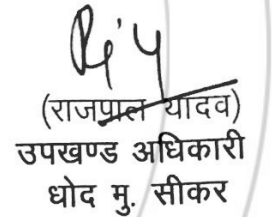 (राजपाल यादव)
उपखण्ड अधिकारी
धोद मु. सीकर